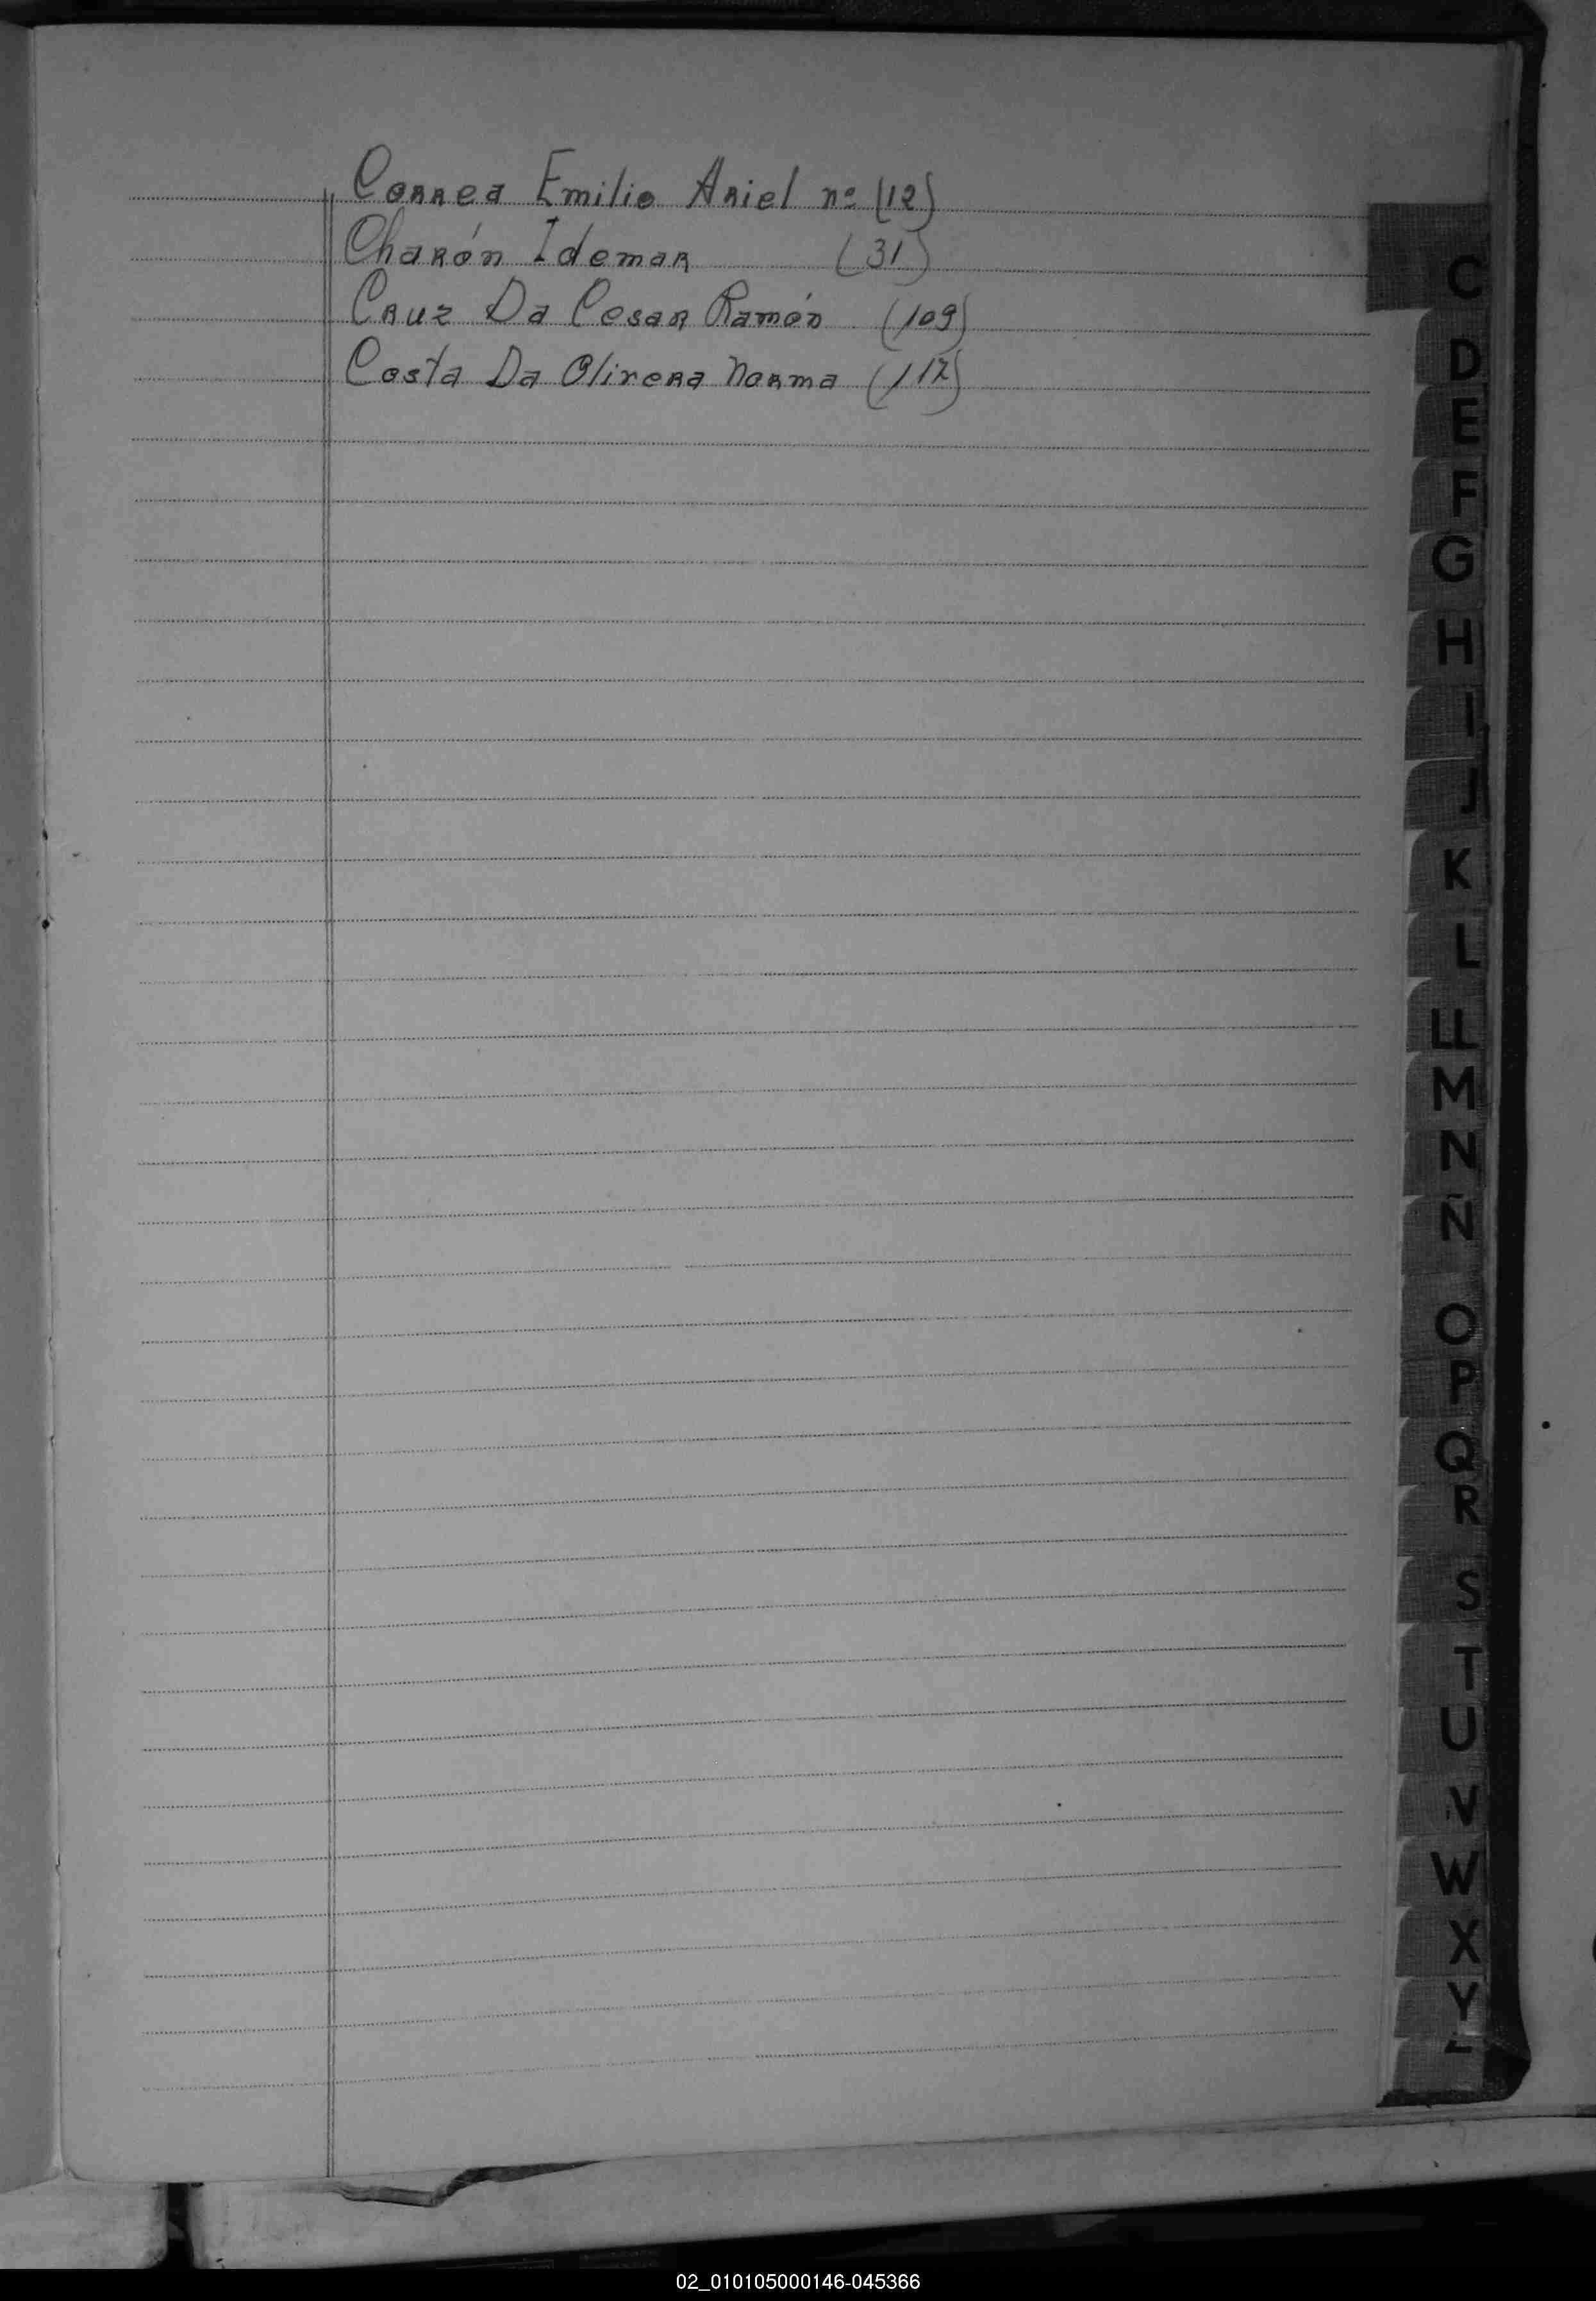 Correa Emilio Ariel nº (12)
Charón Idemar (31)
Cruz Da Cesar Ramón (109)
Costa Da Olivera Norma (117)
C
D
E
F
G
H
I
J
K
L
LL
M
N
Ñ
O
P
Q
R
S
T
U
V
W
X
Y
Z
02_010105000146-045366